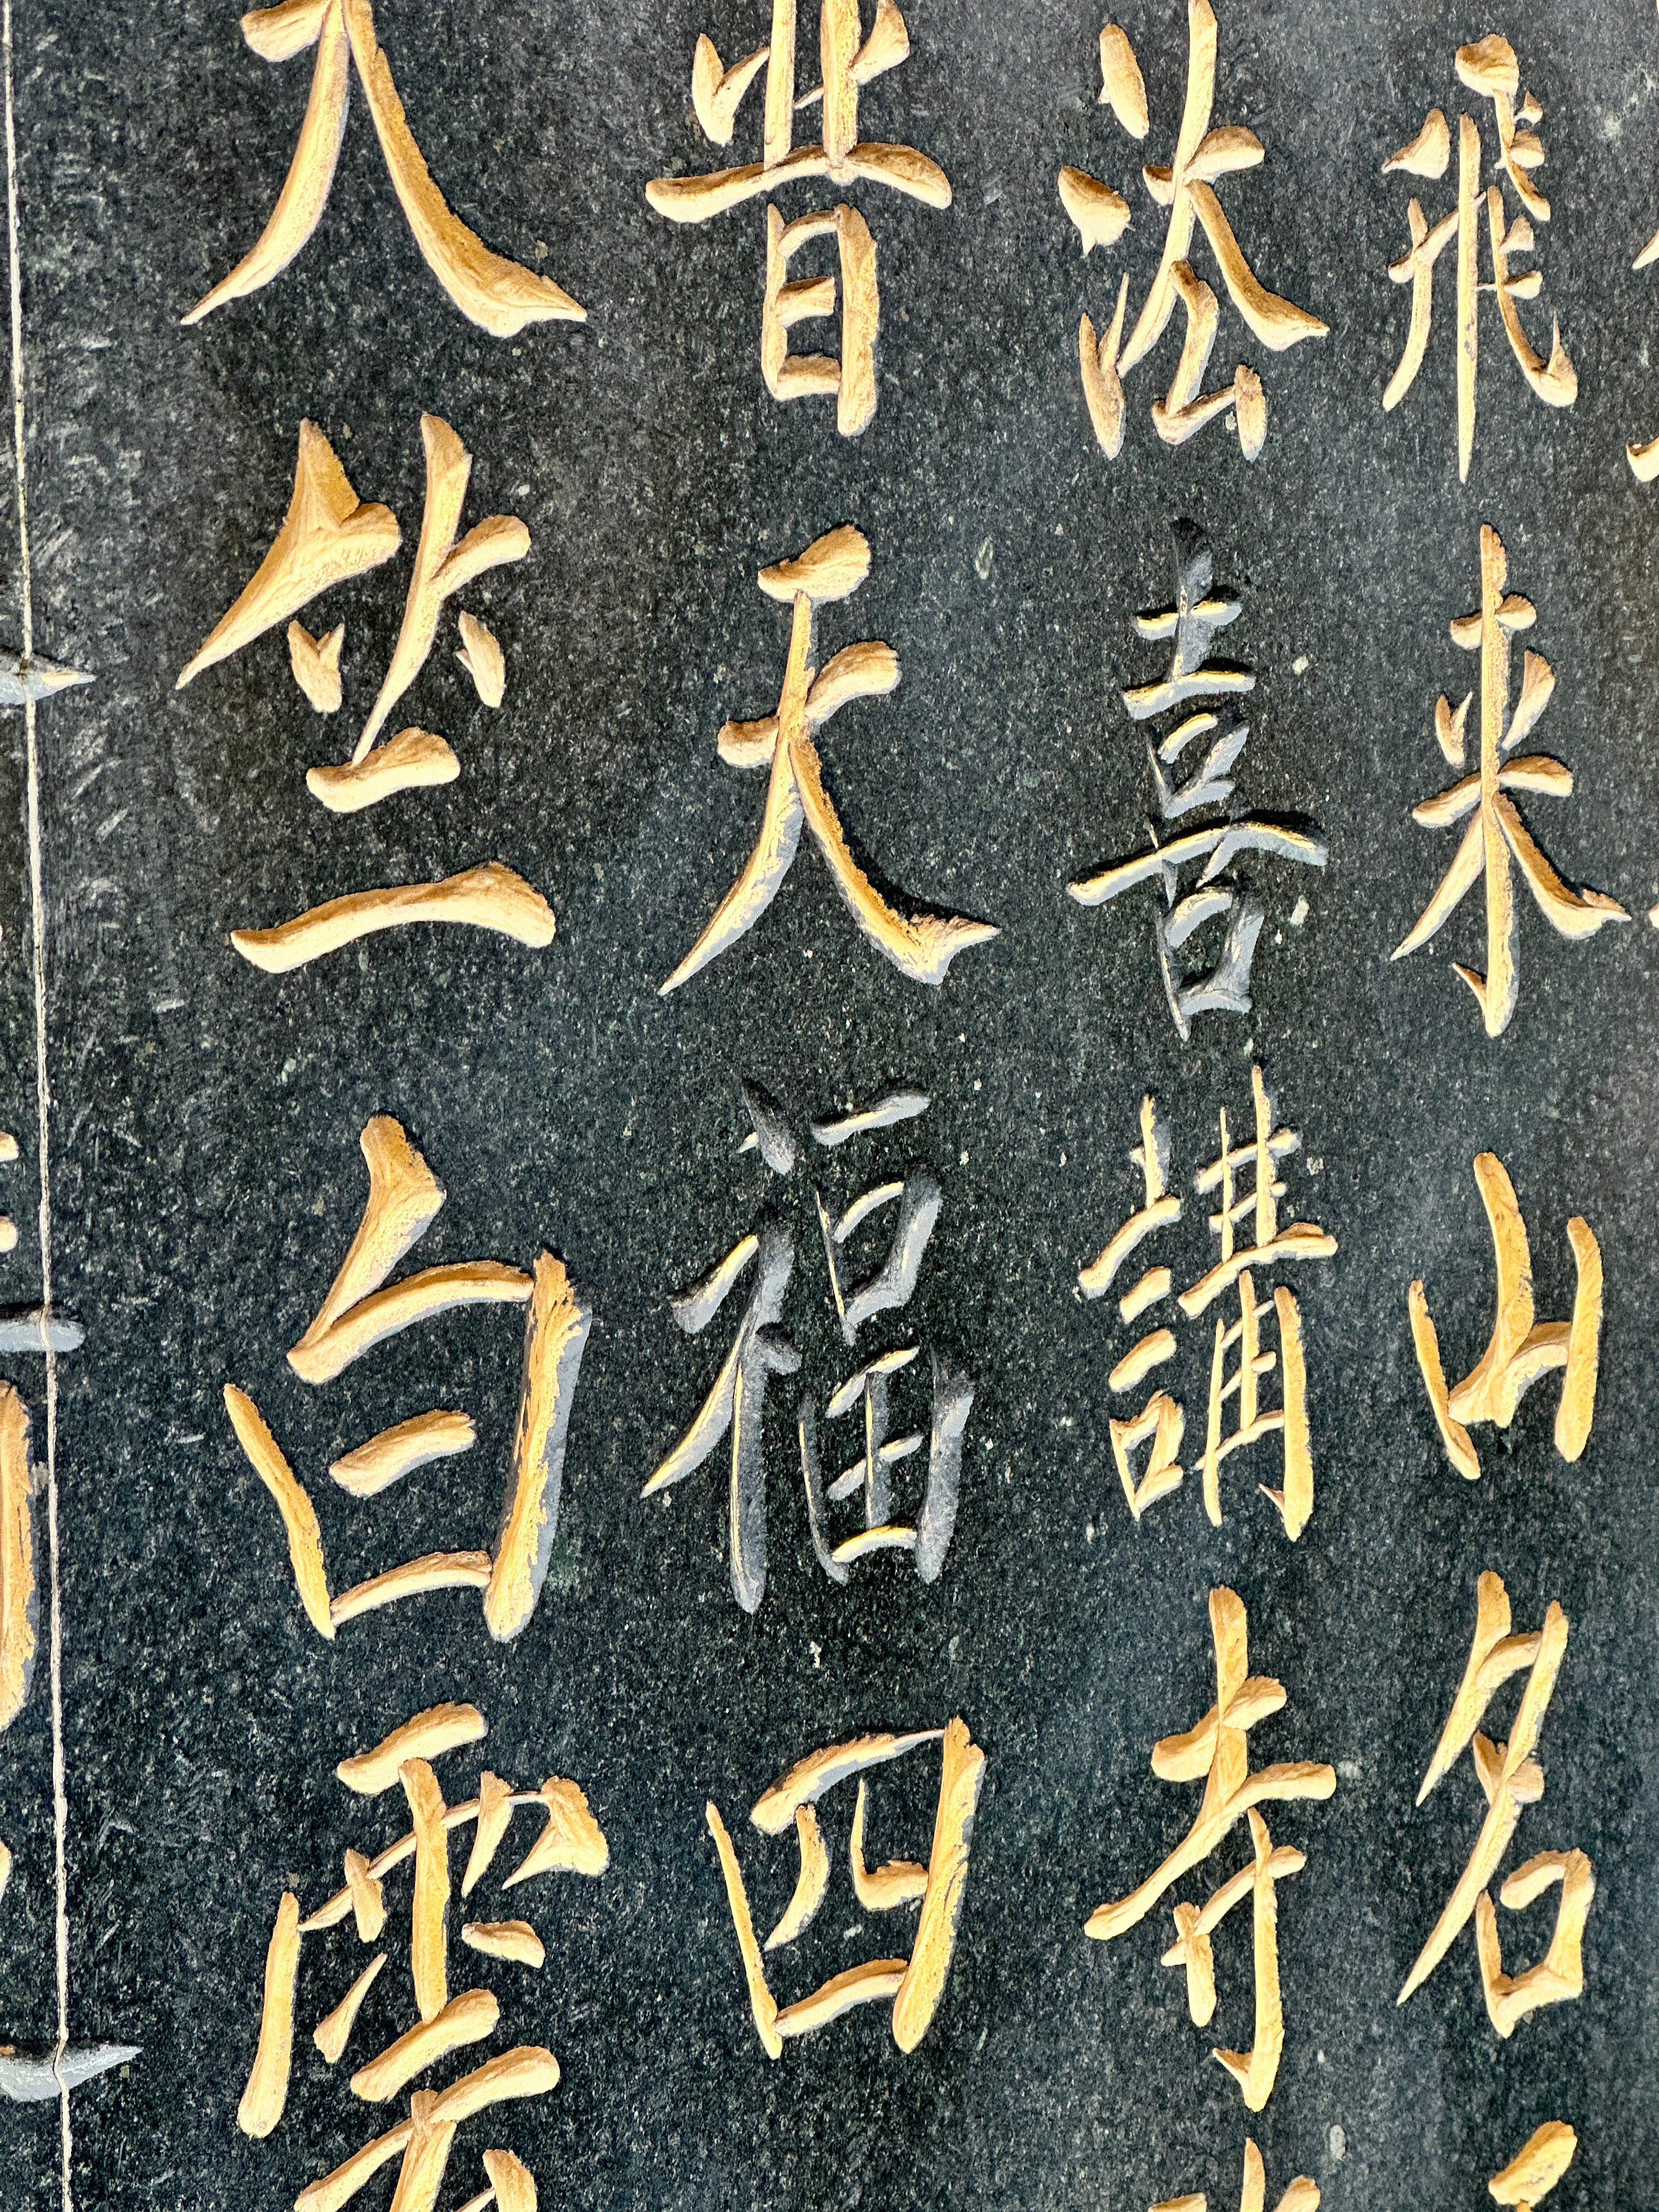 飛来山名
法喜講寺
普天福四
天竺白雲